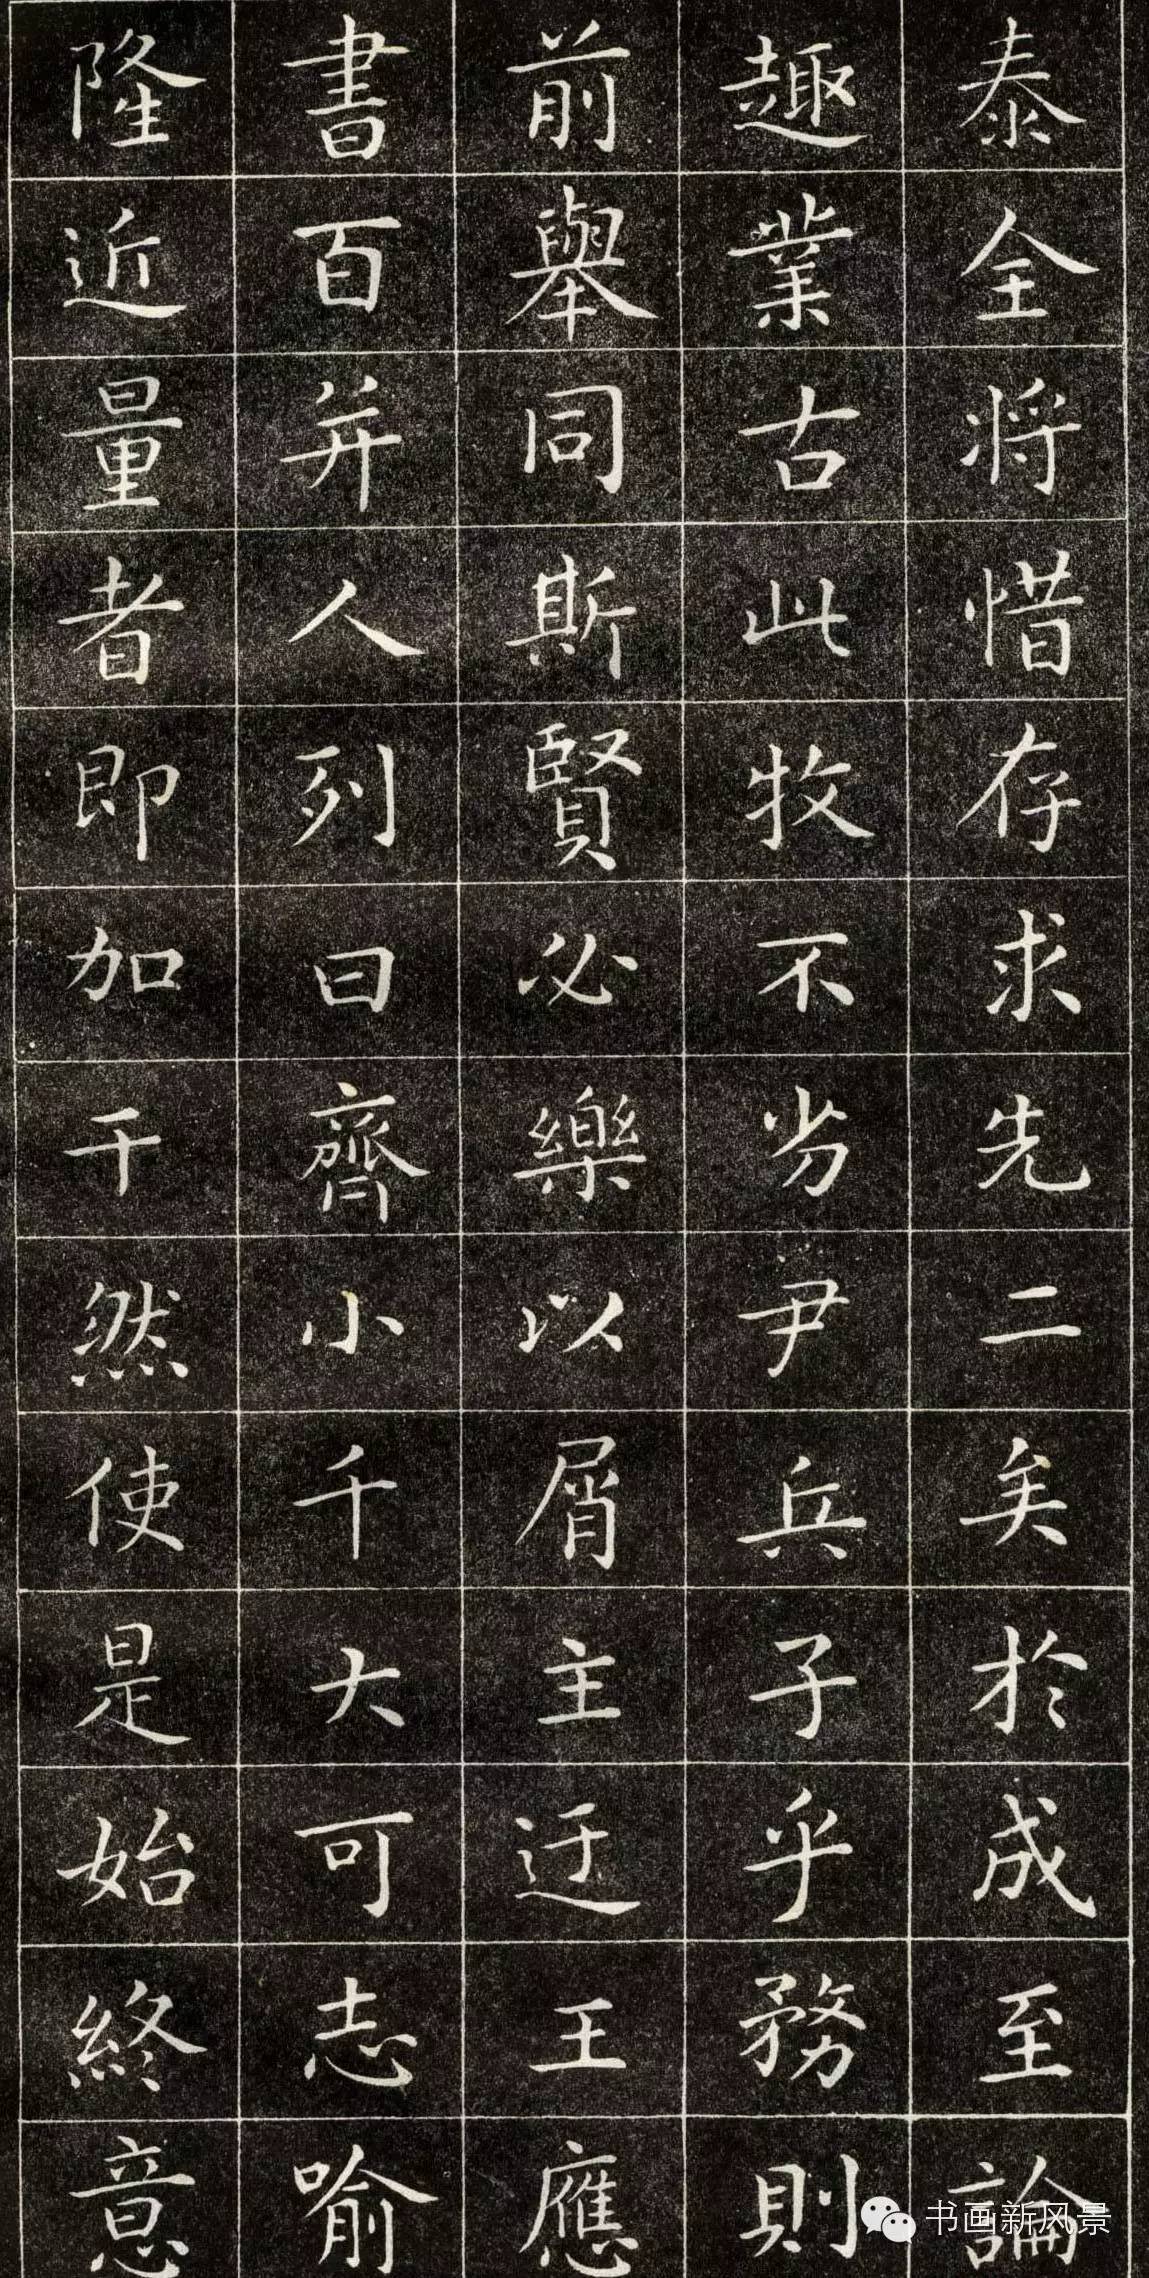 泰全将惜存求先二矣於成至論
趣業古此牧不岁尹兵子乎務則
前舉同斯賢必樂以屑主迂王應
書百并人列曰齊小千大可志喻
隆近量者即加干然使是始終意
书画新风景